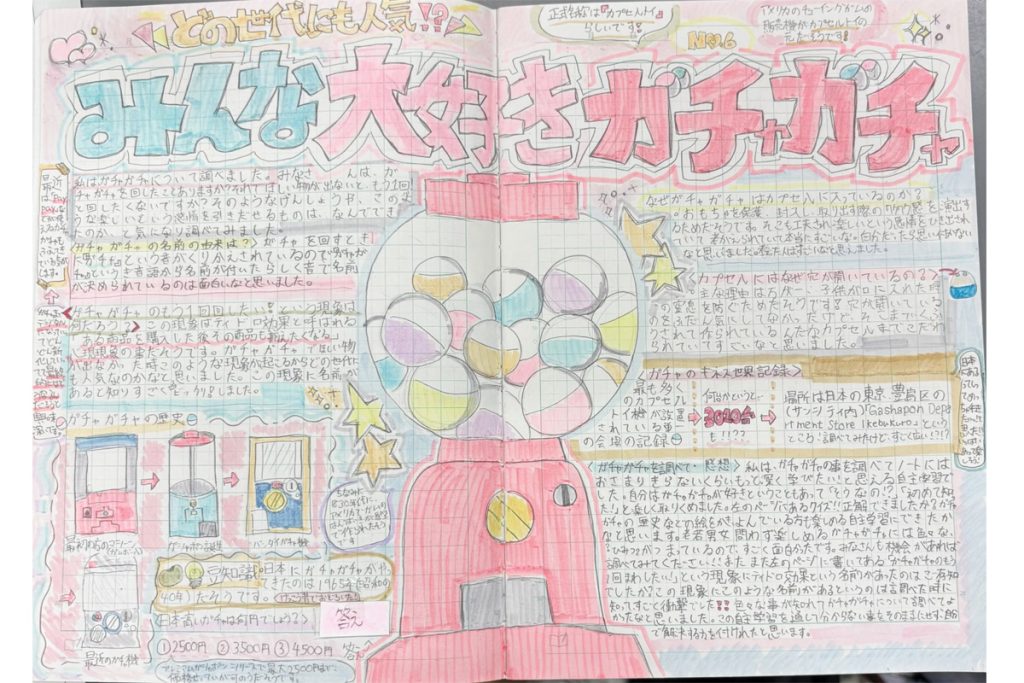 どの世代にも人気!?
正式名称は『カプセルトイ』
らしいです!
No.6
アメリカのチューイングガムの
販売機がカプセルトイの
元だそうです!
みんな大好きガチャガチャ
私はガチャガチャについて調べました。みなさんは、ガ
チャガチャを回したことありますか?それでほしい物が出ないと、もう1回
と回したくないですか?そのようなげんしょうや、このよ
うな楽しいもいう感情を引きだせるものは、なんででき
るのか、と気になり調べてみました。
〈ガチャガチャの名前の由来は?〉ガチャを回すとき
に「ガチャ」という音がくりかえされているので「ガチャガ
チャ」というき音語から名前が付いたらしく音で名前
が決められているのは面白いなと思いました。
〈ガチャガチャのもう1回回したい!という現象は
何だろう?〉この現象はディドロ効果と呼ばれる
ある商品を購入した後、その商品も揃えたくなる
人現現象の事だそうです。ガチャガチャでほしい物
が出なかった時このような現象が起こるからどの世代に
も人気なのかなと思いました。この現象に名前が
あると知りすごくびっくりしました。
ガチャガチャの歴史
最初のころのマシーン
ガチャガチャの誕生
バンダイガチャ機
最近のガチャ機
豆知識 日本にガチャガチャがや
ってきたのは1965年(昭和の
40年)だそうです。
〈日本高いガチャは何円でしょう?〉
①2500円 ②3500円 ③4500円 答え
答え
なぜガチャガチャはカプセルに入っているのか?
おもちゃを保護、封入し、取り出す際のワクワク感を演出す
るためだそうです。そこも工夫され楽しいという感情をひき出され
ていて考えられていて本当にすごいな。自分だったら思いつかない
なと思いました。考えた人はすごいなと思いました。
カプセルにはなぜ穴が開いているの?〉
主な理由は万が一、子供が口に入れた時
の窒息を防ぐためだそうです!穴が開いている
のをふだん気にしてなかったですけど、そこまでふくめ
て作られているんだなカプセルまでこだわ
られていてすごいなと思いました。
〈ガチャのギネス世界記録〉
最も多く
のカプセルト
イ機が設置
されている単一
の会場の記録
何台かというと…
3010台
も!!??
場所は日本の東京豊島区の
(サンシャイン内)「Gashapon Depa
rtment Store Ikebukuro」という
ところ!調べてみたけど、すごく広い!?!
〈ガチャガチャを調べて・感想〉私は、ガチャガチャの事を調べてノートには
おさまりきらないくらいもっと驚く学びたい!と思える自主学習で
した。自分はガチャガチャが好きということもあって「そうなの!?」「初めて知っ
た!」と楽しく取りくめました。左のページにあるクイズ!!正解できましたか?ガチャ
ガチャの歴史などの絵をかきよんでいる方も楽しめる自主学習にできたか
なと思います。老若男女問わず楽しめるガチャガチャには色々な、
ひみつがつまっているので、すごく面白かったです。みなさんも機会があれば
調べてみてくださーい!!またまた左のページに書いてあるガチャガチャのもう
1回まわしたい!という現象にディドロ効果という名前があったのはご存知
でしたか?この現象にこのような名前があるというのは調べた時に
知ってすごく衝撃でした!!色々な事が知れてガチャガチャについて調べてよ
かったなと思いました。この自主学習を通して分からない事をそのままにせず、自分
で解決する力を付けれたと思います。